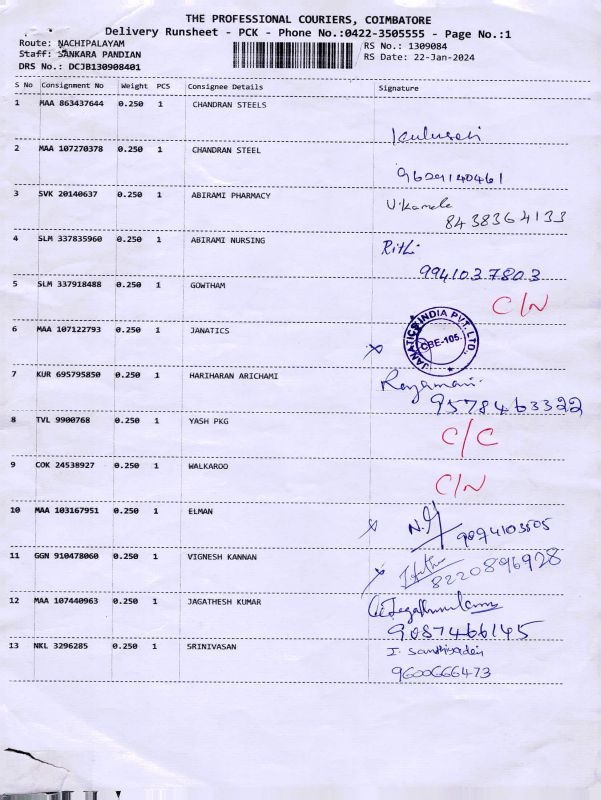 THE PROFESSIONAL COURIERS, COIMBATORE
Delivery Runsheet - PCK - Phone No.:0422-3505555 - Page No.:1
Route: NACHIPALAYAM
Staff: SANKARA PANDIAN
DRS No.: DCJB130908401
RS No.: 1309084
RS Date: 22-Jan-2024
S No Consignment No Weight PCS Consignee Details Signature
1 MAA 863437644 0.250 1 CHANDRAN STEELS
2 MAA 107270378 0.250 1 CHANDRAN STEEL
9629140461
3 SVK 20140637 0.250 1 ABIRAMI PHARMACY V.Kamala
8438364133
4 SLM 337835960 0.250 1 ABIRAMI NURSING Rithi
9941037803
5 SLM 337918488 0.250 1 GOWTHAM C/N
6 MAA 107122793 0.250 1 JANATICS
JANATICS INDIA PVT. LTD.
CBE-105.
7 KUR 695795850 0.250 1 HARIHARAN ARICHAMI
9578463322
8 TVL 9900768 0.250 1 YASH PKG C/C
9 COK 24538927 0.250 1 WALKAROO C/N
10 MAA 103167951 0.250 1 ELMAN
9094103505
11 GGN 910478060 0.250 1 VIGNESH KANNAN
8220896928
12 MAA 107440963 0.250 1 JAGATHESH KUMAR
9087466145
13 NKL 3296285 0.250 1 SRINIVASAN
9600666473